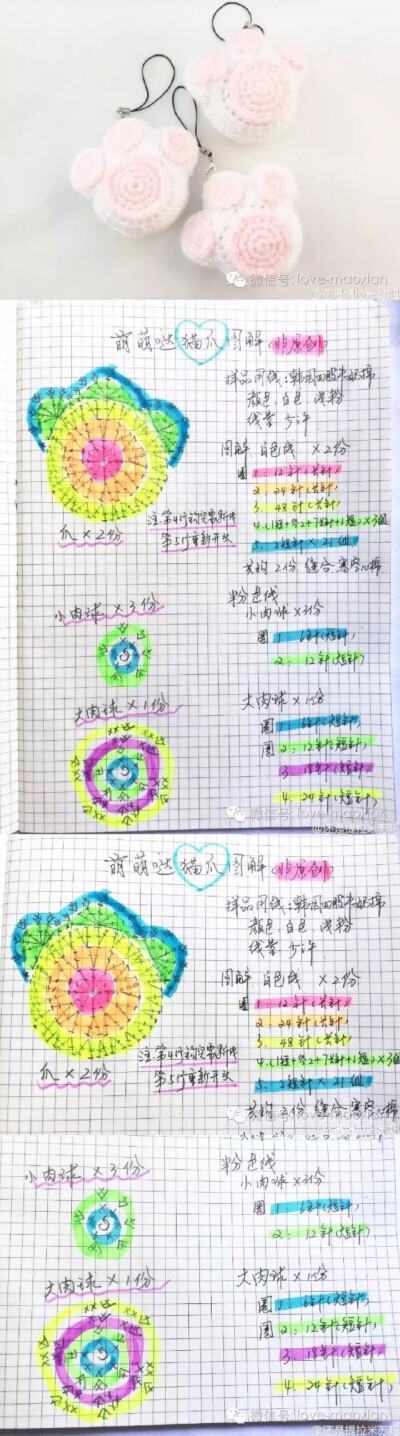 微信号:love-maoxian
萌萌哒猫爪图解(非原创)
样品用线:韩国四股牛奶棉
颜色 白色 浅粉
线量 少许
图解 白色线 ×2份
圈1 12针(长针)
2: 24针(长针)
3. 48针(长针)
5. 2短针×21组
共钩2份 缝合
注:第4行钩完要断线
第5行重新开头
爪×2份
粉色线
小肉球×3份
小肉球×3份
圈1 6针(短针)
2: 12针(短针)
大肉球×1份
大肉球×1份
圈1 6针(短针)
圈2:12针(短针)
3. 18针(短针)
4. 24针(短针)
微信号:love-maoxian
萌萌哒猫爪图解(非原创)
样品用线:韩国四股牛奶棉
颜色 白色 浅粉
线量 少许
图解 白色线 ×2份
圈1 12针(长针)
2: 24针(长针)
3. 48针(长针)
5. 2短针×21组
注:第4行钩完要断线
第5行重新开头
爪×2份
微信号:love-maoxian
粉色线
小肉球×3份
小肉球×3份
圈1 6针(短针)
2: 12针(短针)
大肉球×1份
大肉球×1份
圈1 6针(短针)
圈2:12针(短针)
3. 18针(短针)
4. 24针(短针)
微信号:love-maoxian